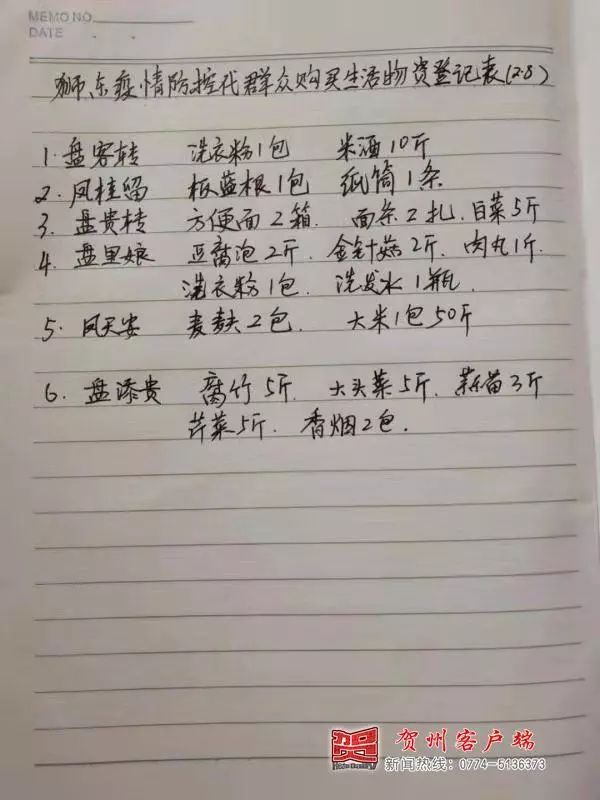 MEMO NO.
DATE
狮东疫情防控代群众购买生活物资登记表(2.8)
1. 盘客转 洗衣粉1包 米酒10斤
2. 凤桂留 板蓝根1包 纸筒1条
3. 盘贵转 方便面2箱. 面条2扎. 白菜5斤
4. 盘里娘 豆腐泡2斤. 金针菇2斤. 肉丸1斤.
洗衣粉1包. 洗发水1瓶.
5. 凤天安 麦麸2包. 大米1包50斤
6. 盘添贵 腐竹5斤. 大头菜5斤. 蒜苗3斤
芹菜5斤. 香烟2包.
贺州客户端
新闻热线：0774-5136373